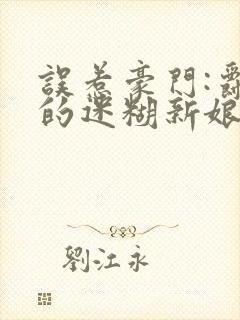 誤惹豪門:
的迷糊新娘
劉江永